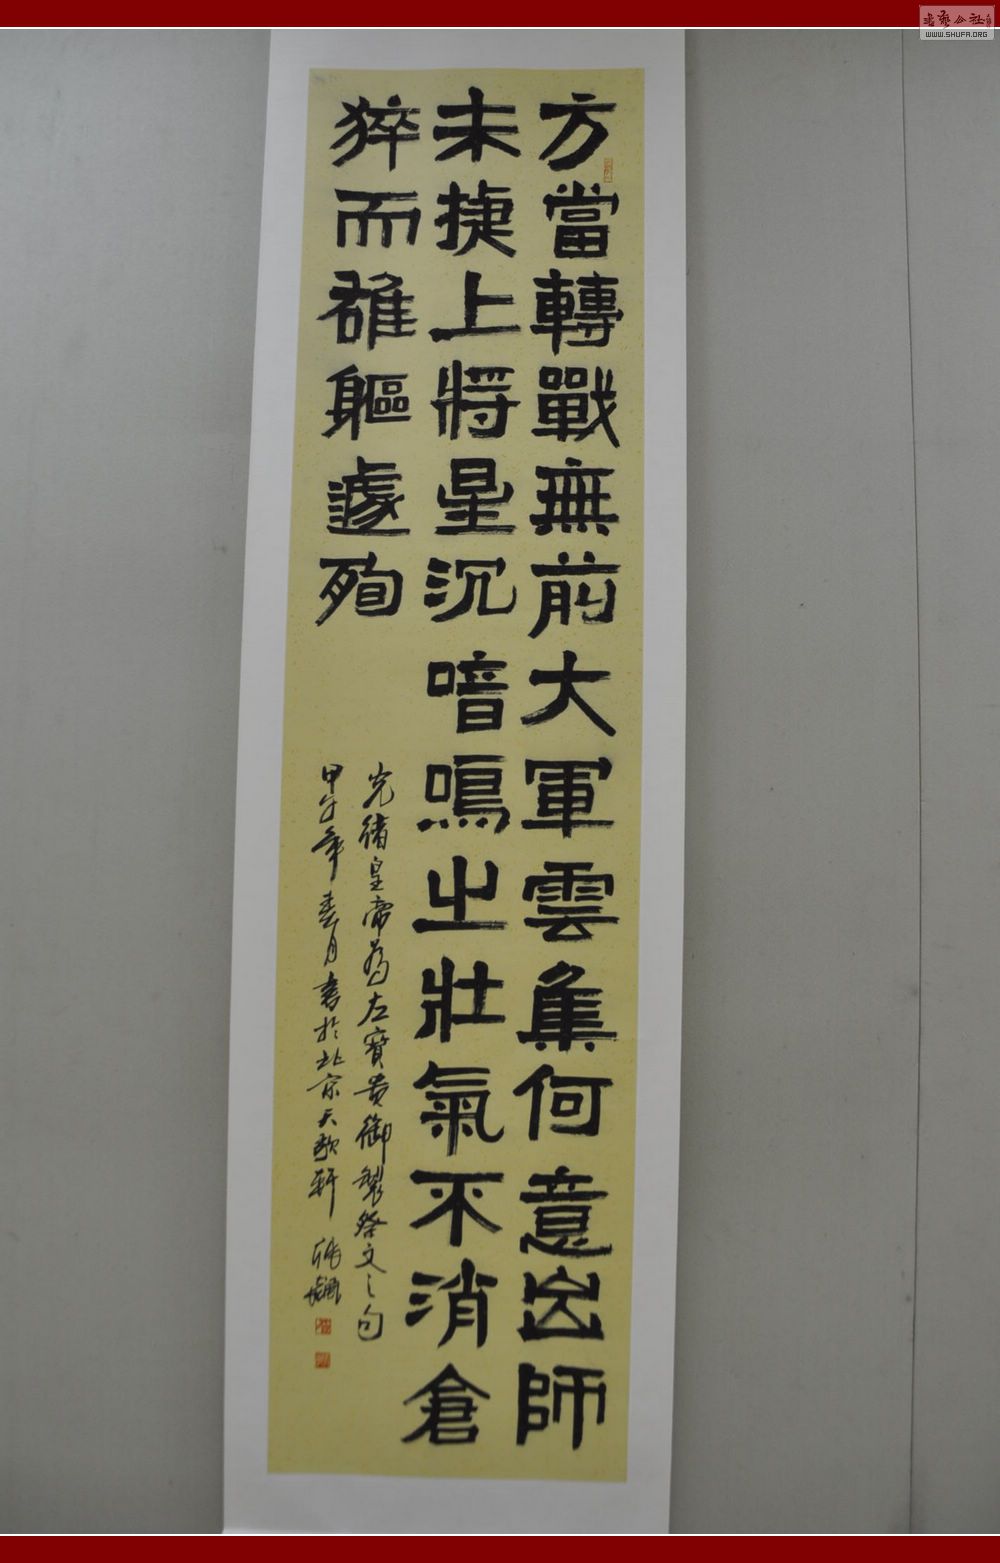 方當轉戰無前大軍雲集何意出師
未捷上將星沉喑鳴之壯氣不消倉
猝而雄軀遽殉
光緒皇帝為左寶貴御製祭文之句
甲午年春月書於北京天歌軒
書藝公社
WWW.SHUFA.ORG